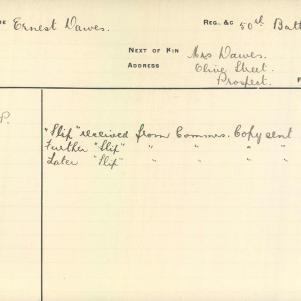 E Ernest Dawes. REG. &C 50th Batt
NEXT OF KIN Mrs Dawes.
ADDRESS Cling Street.
Prospect.
F
P.
"Slip" received from Commrs. Copy sent
Further "Slip" " " " "
Later "Slip" " " " "